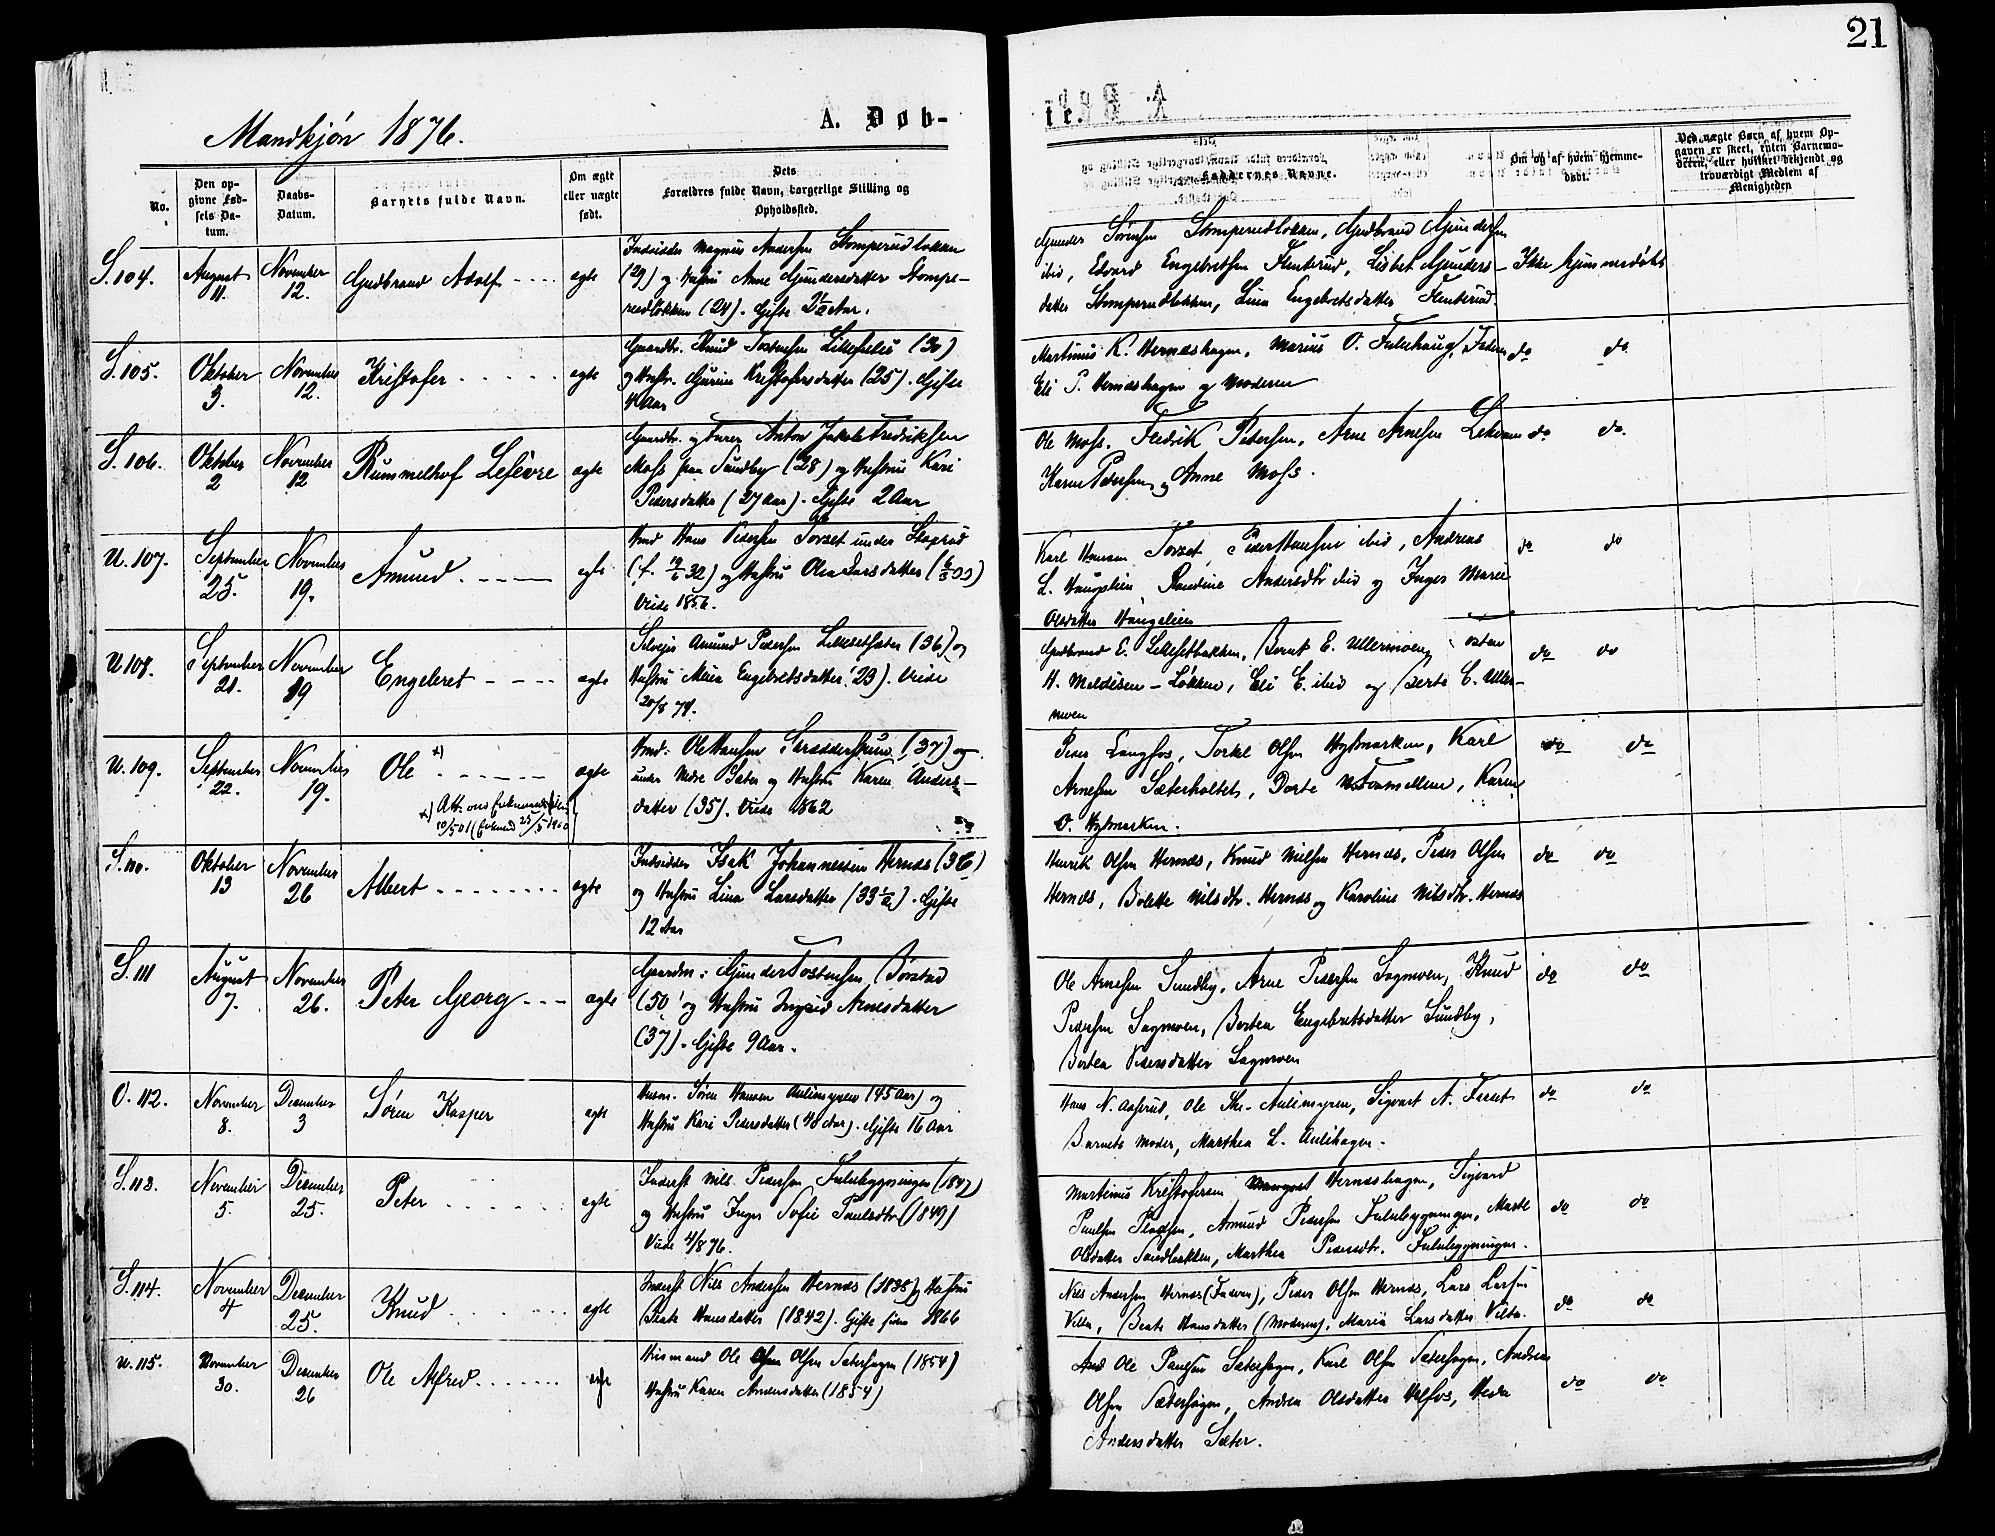 21
Mandkjøn 1876.
A. Døb-
te.
No.
Den op-
givne Fød-
sels Da-
tum.
Daabs-
Datum.
Barnets fulde Navn.
Om ægte
eller uægte
født.
Dets
Forældres fulde Navn, borgerlige Stilling og
Opholdssted.
Faddernes Navne.
Om og af hvem hjemme-
døbt.
Ved uægte Børn af hvem Op-
gaven er skeet, enten Barnemo-
deren, eller hvilket bekjendt og
troværdigt Medlem af
Menigheden
S. 104.
August
11.
November
12.
Gudbrand Adolf
ægte
Indsidder Magnus Andersen Stomperudløkken
(29) og Hustru Anne Gundersdatter Stompe-
rudløkken (24). Gifte 2½ Aar.
Gunder Sørensen Stomperudløkken, Gudbrand Gundersen
ibid, Edvard Engebretsen Flenterud, Lisbet Gunders-
datter Stomperudløkken, Lina Engebretsdatter Flenterud.
Ikke hjemmedøbt
S. 105.
Oktober
3.
November
12.
Kristofer
ægte
Gaardbr. Knud Tostensen (30)
og Hustr. Gurine Kristofersdatter (25). Gifte
4 Aar
Martinus K. Hernæshagen, Marius O. Fuluhaug, Faderen
Eli P. Hernæshagen og Moderen
do do
S. 106.
Oktober
2
November
12
Rummelhof Lefèvre
ægte
Gaardbr. og Anton Jakob Fredriksen
Moss paa Sundby (28) og Hustru Kari
Pedersdatter (27 Aar). Gifte 2 Aar
Ole Moss. Fredrik Pedersen, Arne Arnesen
Karen Pedersen og Anne Moss.
do do.
U. 107.
September
25.
November
19.
Amund
ægte
Hmd Hans Pedersen Torset under
(f. 19/6 32) og Hustru Olea Larsdatter
Viede 1856.
Karl Hansen Torset, Peder Hansen ibid, Andreas
L. Haugslien Andersdtr ibid og Inger Marie
Olsdatter Haugslien
do do
U 108.
September
21.
November
19
Engebret
ægte
Selvejer Amund Pedersen (36) og
Hustru Maria Engebretsdatter (23). Viede
20/8 74.
Gudbrand E. Lillesetbakken, Bernt E. Ullermoen,
H. Meldisen-Løkken, Eli E. ibid og Berte E. Uller-
moen
do do
U. 109.
September
22.
November
19.
Ole x)
x) Att. om
10/5 01 ( 25/5 1900
ægte
Hmd. Ole Hansen (37) og
under Nedre Sæter og Hustru Karen Anders-
datter (35). Viede 1862
Peder Langfos, Torkel Olsen Hylmarken, Karl
Arnesen Sæterholtet, Dorte Karen
O. Hylmarken.
do do
S. 110.
Oktober
13
November
26
Albert
ægte
Indsidder Isak Johannessen Hernæs (36)
og Hustru Lina Larsdatter (33½). Gifte
12 Aar
Henrik Olsen Hernæs, Knud Nielsen Hernæs, Peder Olsen
Hernæs, Bolette Nilsdtr. Hernæs og Karoline Nilsdtr. Hernæs
do do
S. 111
August
7.
November
26.
Peter Georg
ægte
Gaardm: Gunder Tostensen Børstad
(50) og Hustru Ingrid Arnesdatter
(37). Gifte 9 Aar.
Ole Arnesen Sundby, Arne Pedersen Sagmoen, Knud
Pedersen Sagmoen, Bertea Engebretsdatter Sundby,
Bertea Pedersdatter Sagmoen
do do
O. 112.
November
8.
December
3
Søren Kasper
ægte
Husm. Søren Hansen Aulimyren (45 Aar) og
Hustru Kari Pedersdatter (40 Aar). Gifte 16 Aar
Hans N. Aaserud, Ole Aulimyren, Sigvart A.
Barnets Moder, Marthea L. Aulihagen.
do do
S. 113.
November
5
December
25.
Peter
ægte
Inderst Nils Pedersen Fulubygningen (1847)
og Hustru Inger Sofie Paulsdtr (1849)
Viede 4/8 76.
Martinus Kristofersen Hernæshagen, Sigvard
Paulsen Amund Pedersen Fulubygningen, Marte
Olsdatter Sandbakken, Marthea Pedersdtr. Fulubygningen.
do do
S. 114.
November
4
December
25.
Knud
ægte
Inderst Nils Andersen Hernæs (1838) og Hustru
Beate Hansdatter (1842). Gifte siden 1866
Nils Andersen Hernæs (Faderen), Peder Olsen Hernæs, Lars Larsen
Vilta, Beate Hansdatter (Moderen), Maria Larsdatter Vilta.
do do
U. 115.
November
30.
December
26
Ole Alfred
ægte
Husmand Ole Olsen Sæterhagen (1854)
Hustru Karen Andersdatter (1854)
Ole Paulsen Sæterhagen, Karl Olsen Sæterhagen, Andreas
Olsen Sæterhagen, Andrea Olsdatter Ulfos, Heda
Andersdatter Sæter.
do do